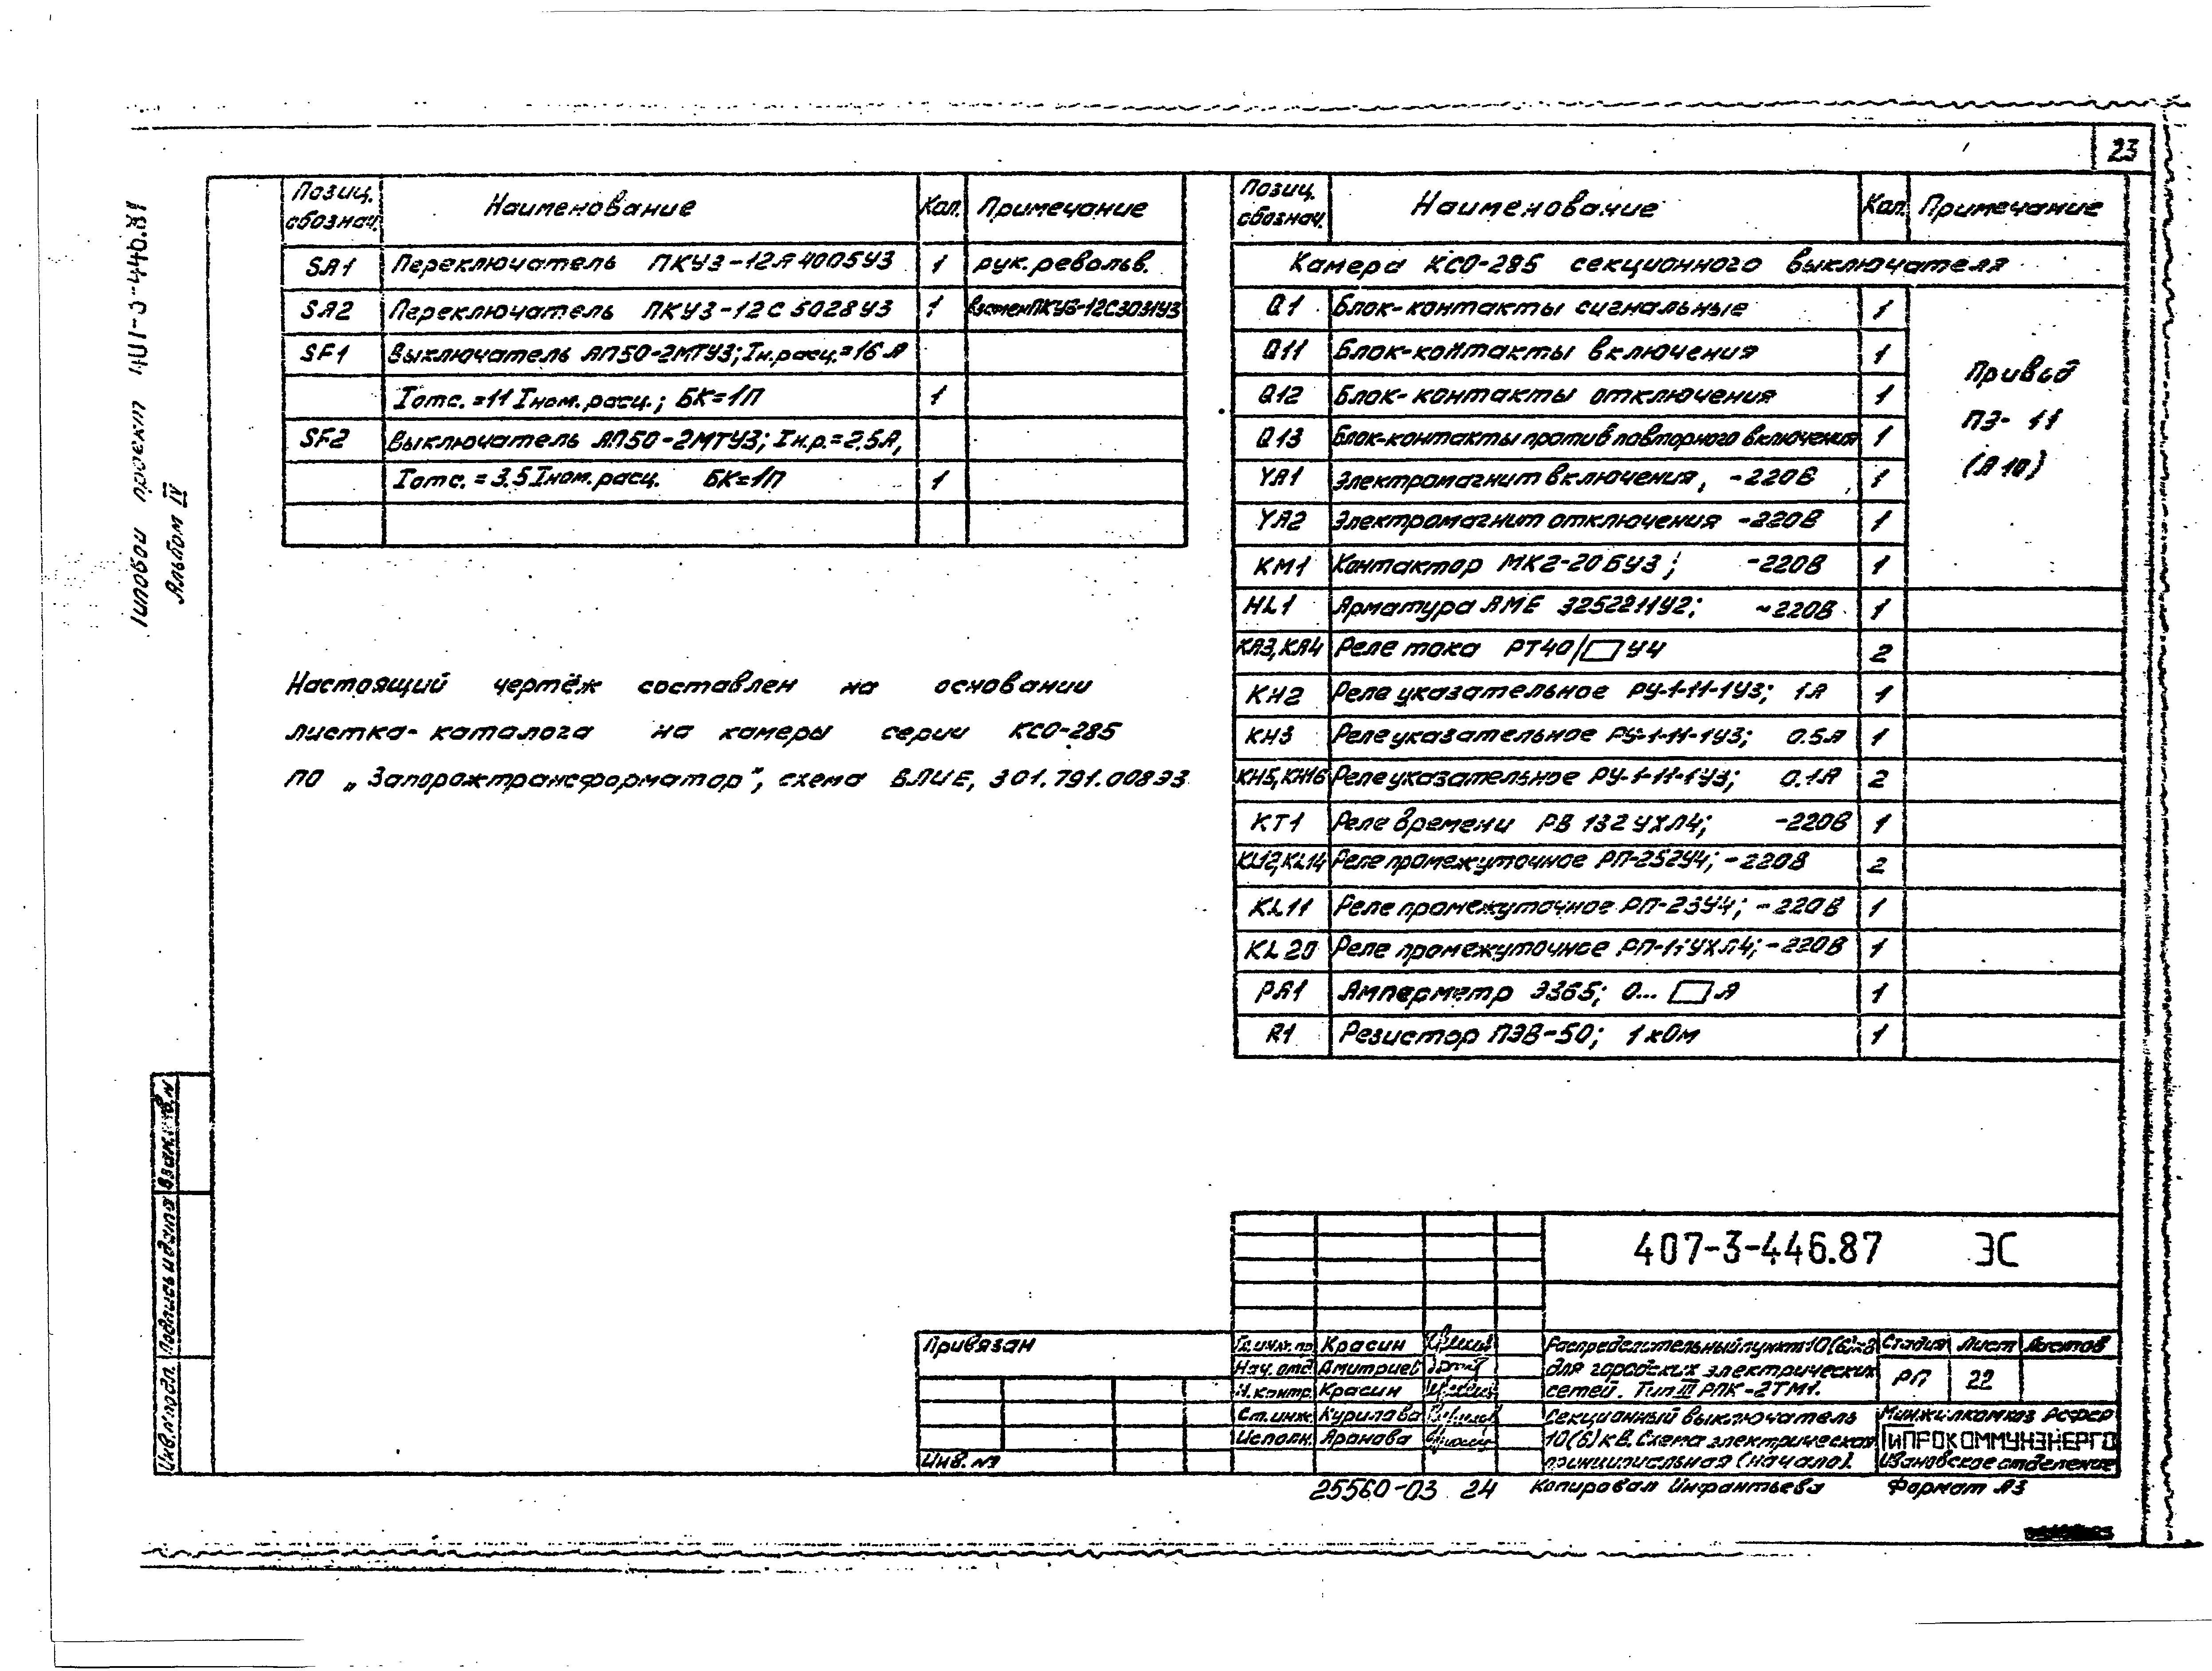 23
Типовой проект 407-3-446.87
Альбом IV
Позиц. обознач. Наименование Кол. Примечание
SA1 Переключатель ПКУ3-12А4005У3 1 рук. револьв.
SA2 Переключатель ПКУ3-12С5028У3 1 взамен ПКУ3-12С3031У3
SF1 Выключатель АП50-2МТУ3; Iн.расц.=16А
Iотс.=11 Iном.расц.; БК=1П 1
SF2 Выключатель АП50-2МТУ3; Iн.р.=2.5А,
Iотс.=3.5 Iном.расц. БК=1П 1
Настоящий чертёж составлен на основании
листка-каталога на камеры серии КСО-285
ПО „Запорожтрансформатор", схема ВЛИЕ, 301.791.008Э3.
Позиц. обознач. Наименование Кол. Примечание
Камера КСО-285 секционного выключателя
Q1 Блок-контакты сигнальные 1
Q11 Блок-контакты включения 1
Q12 Блок-контакты отключения 1
Q13 Блок-контакты против повторного включения 1
YA1 Электромагнит включения, -220В 1
YA2 Электромагнит отключения -220В 1
KM1 Контактор МК2-20БУ3; -220В 1
Привод
ПЭ-11
(А10)
HL1 Арматура АМЕ 325221У2; ~220В 1
KA3,KA4 Реле тока РТ40/▭У4 2
KH2 Реле указательное РУ-1-11-1У3; 1А 1
KH3 Реле указательное РУ-1-11-1У3; 0.5А 1
KH5,KH16 Реле указательное РУ-1-11-1У3; 0.1А 2
KT1 Реле времени РВ 132УХЛ4; -220В 1
KL12,KL14 Реле промежуточное РП-252У4; -220В 2
KL11 Реле промежуточное РП-23У4; -220В 1
KL20 Реле промежуточное РП-11УХЛ4; -220В 1
PA1 Амперметр Э365; 0... ▭А 1
R1 Резистор ПЭВ-50; 1кОм 1
Взам. инв. N
Подпись и дата
Инв. N подл.
407-3-446.87 ЭС
Привязан
Инв. №
Гл. инж. пр. Красин
Нач. отд. Дмитриев
Н. контр. Красин
Ст. инж. Курилова
Исполн. Аронова
Распределительный пункт 10(6)кВ
для городских электрических
сетей. Тип III РПК-2ТМ1.
Стадия Лист Листов
РП 22
Секционный выключатель
10(6)кВ. Схема электрическая
принципиальная (начало).
Минжилкомхоз РСФСР
ГИПРОКОММУНЭНЕРГО
Ивановское отделение
25560-03 24 Копировал Инфантьева Формат А3